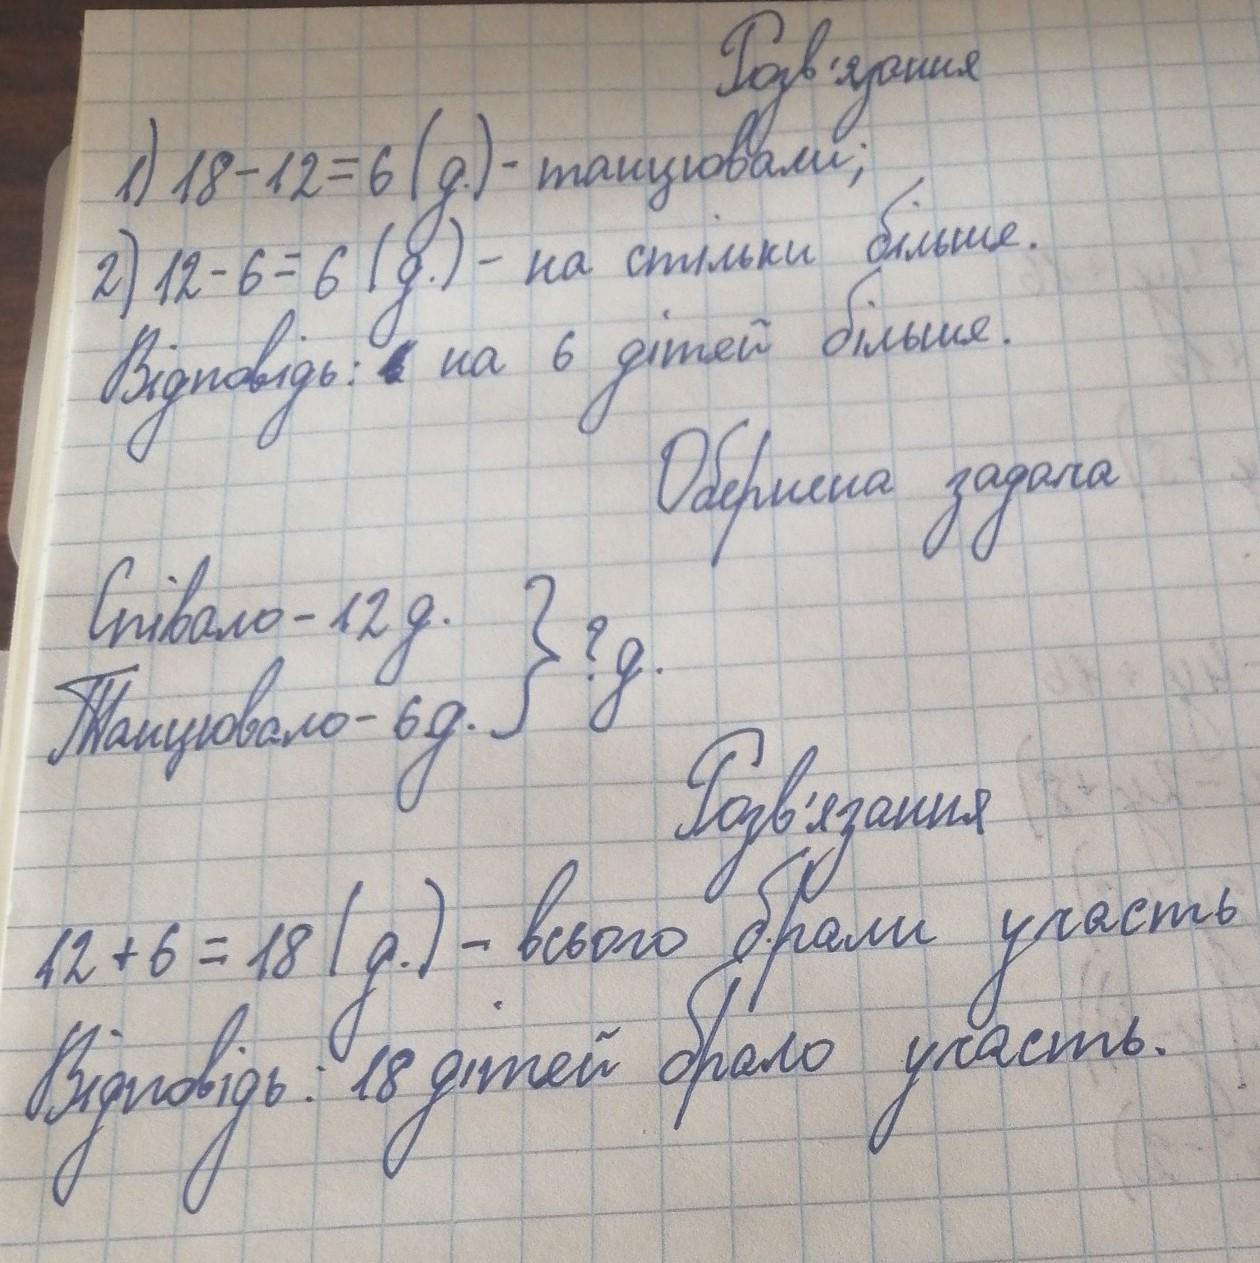 Розв'язання
1) 18-12=6 (д.) - танцювали;
2) 12-6=6 (д.) - на стільки більше.
Відповідь: на 6 дітей більше.
Обернена задача
Співало - 12 д.
Танцювало - 6 д. } ? д.
Розв'язання
12+6=18 (д.) - всього брали участь
Відповідь: 18 дітей брало участь.